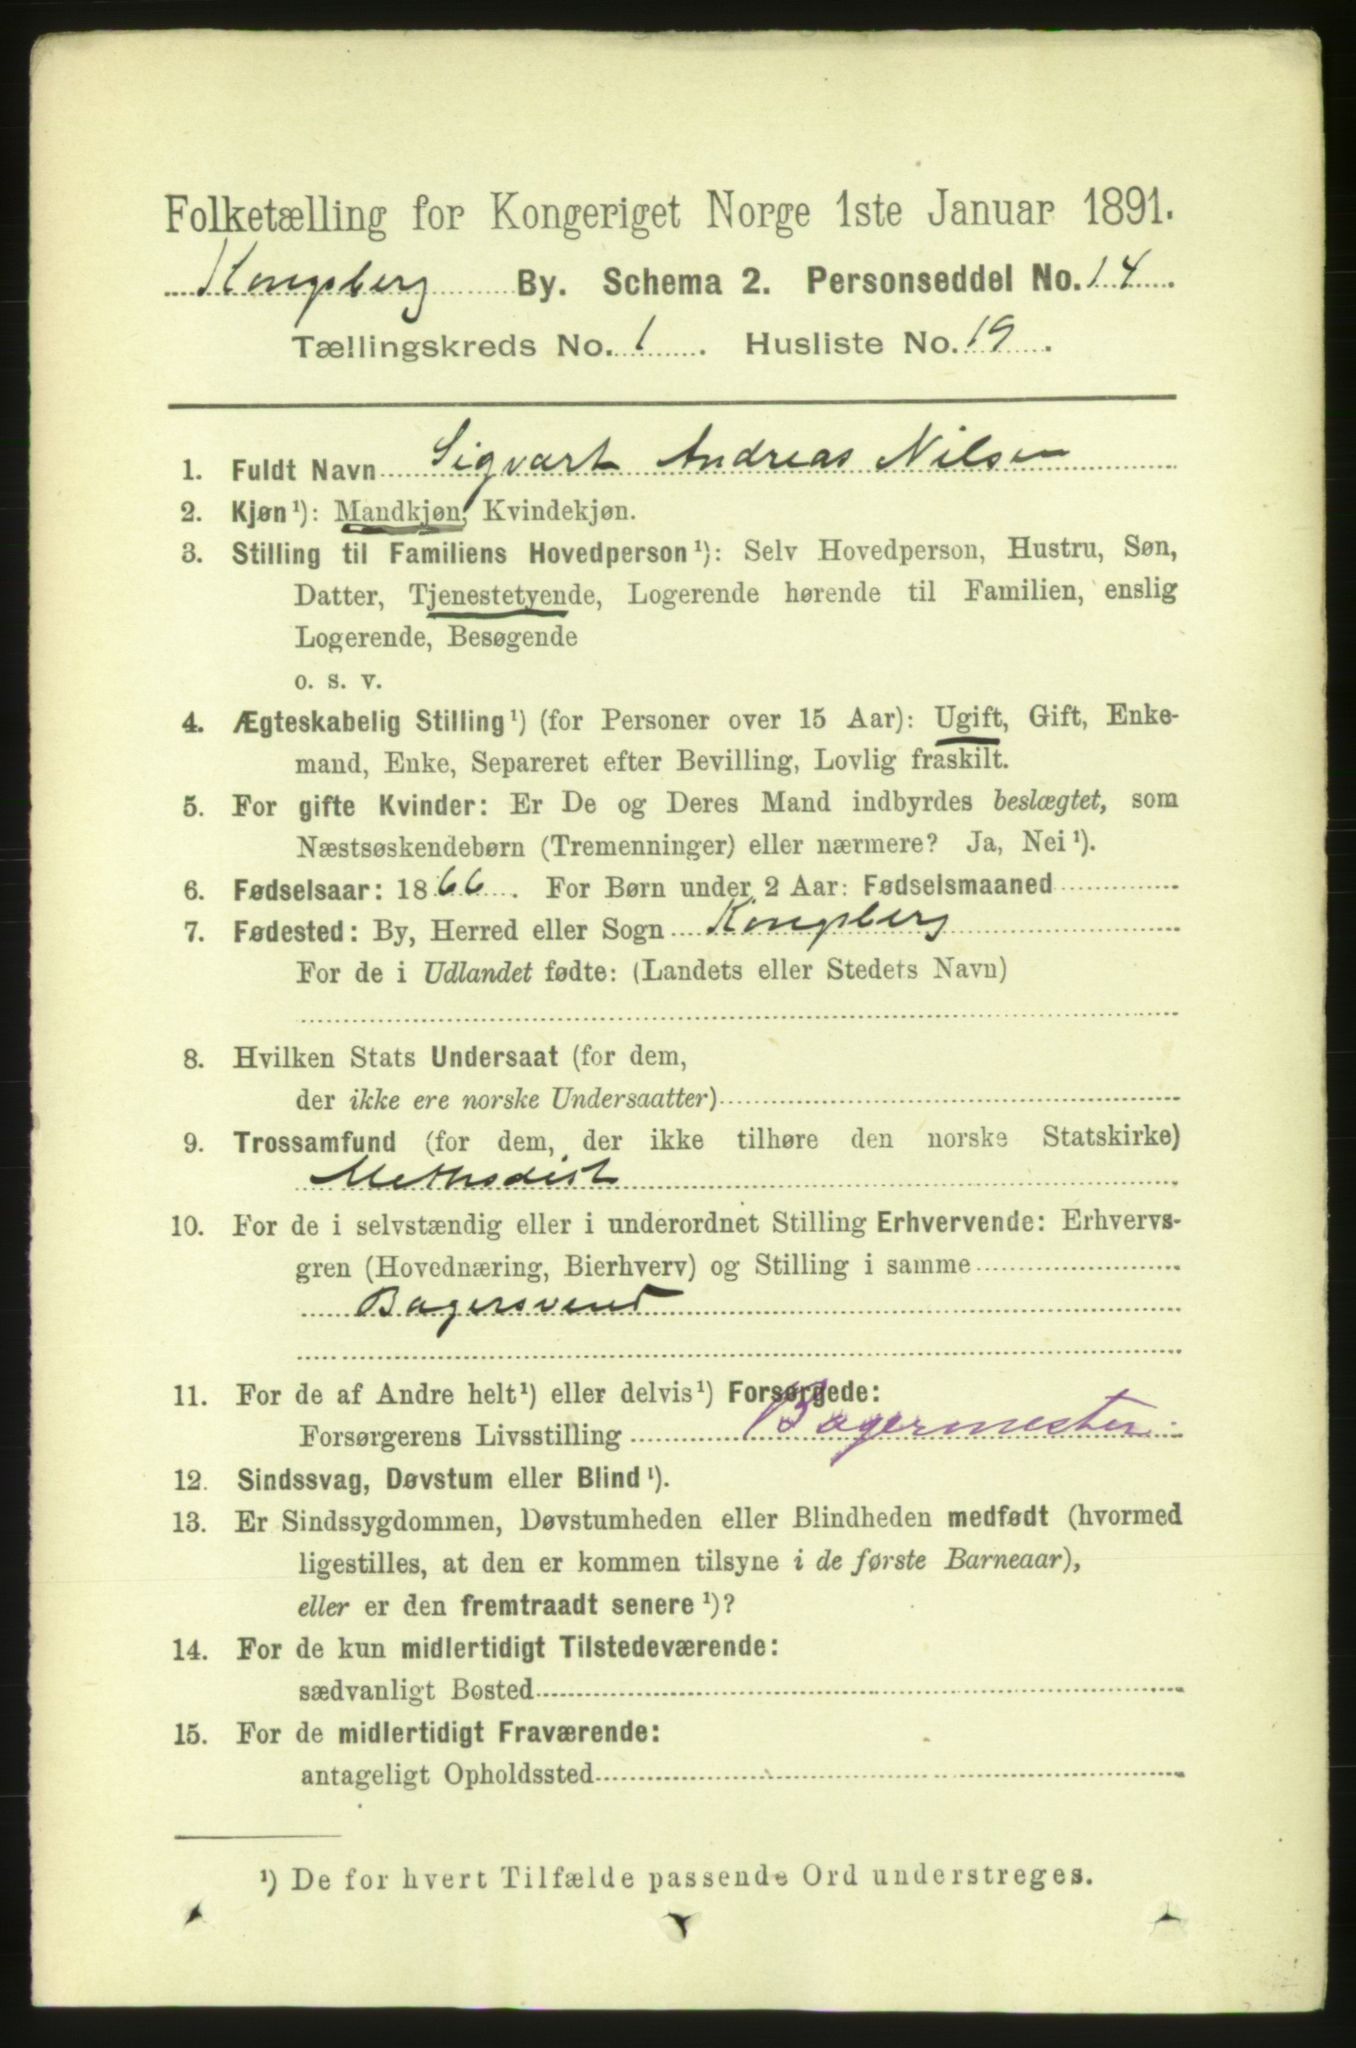 Folketælling for Kongeriget Norge 1ste Januar 1891.
Kongsberg By. Schema 2. Personseddel No. 14.
Tællingskreds No. 1. Husliste No. 19.
1. Fuldt Navn Sigvart Andreas Nilsen
2. Kjøn ¹): Mandkjøn, Kvindekjøn.
3. Stilling til Familiens Hovedperson ¹): Selv Hovedperson, Hustru, Søn,
Datter, Tjenestetyende, Logerende hørende til Familien, enslig
Logerende, Besøgende
o. s. v.
4. Ægteskabelig Stilling ¹) (for Personer over 15 Aar): Ugift, Gift, Enke-
mand, Enke, Separeret efter Bevilling, Lovlig fraskilt.
5. For gifte Kvinder: Er De og Deres Mand indbyrdes beslægtet, som
Næstsøskendebørn (Tremenninger) eller nærmere? Ja, Nei ¹).
6. Fødselsaar: 1866. For Børn under 2 Aar: Fødselsmaaned
7. Fødested: By, Herred eller Sogn Kongsberg
For de i Udlandet fødte: (Landets eller Stedets Navn)
8. Hvilken Stats Undersaat (for dem,
der ikke ere norske Undersaatter)
9. Trossamfund (for dem, der ikke tilhøre den norske Statskirke)
Methodist
10. For de i selvstændig eller i underordnet Stilling Erhvervende: Erhvervs-
gren (Hovednæring, Bierhverv) og Stilling i samme
Bagersvend
11. For de af Andre helt ¹) eller delvis ¹) Forsørgede:
Forsørgerens Livsstilling Bagermester
12. Sindssvag, Døvstum eller Blind ¹).
13. Er Sindssygdommen, Døvstumheden eller Blindheden medfødt (hvormed
ligestilles, at den er kommen tilsyne i de første Barneaar),
eller er den fremtraadt senere ¹)?
14. For de kun midlertidigt Tilstedeværende:
sædvanligt Bosted
15. For de midlertidigt Fraværende:
antageligt Opholdssted
¹) De for hvert Tilfælde passende Ord understreges.